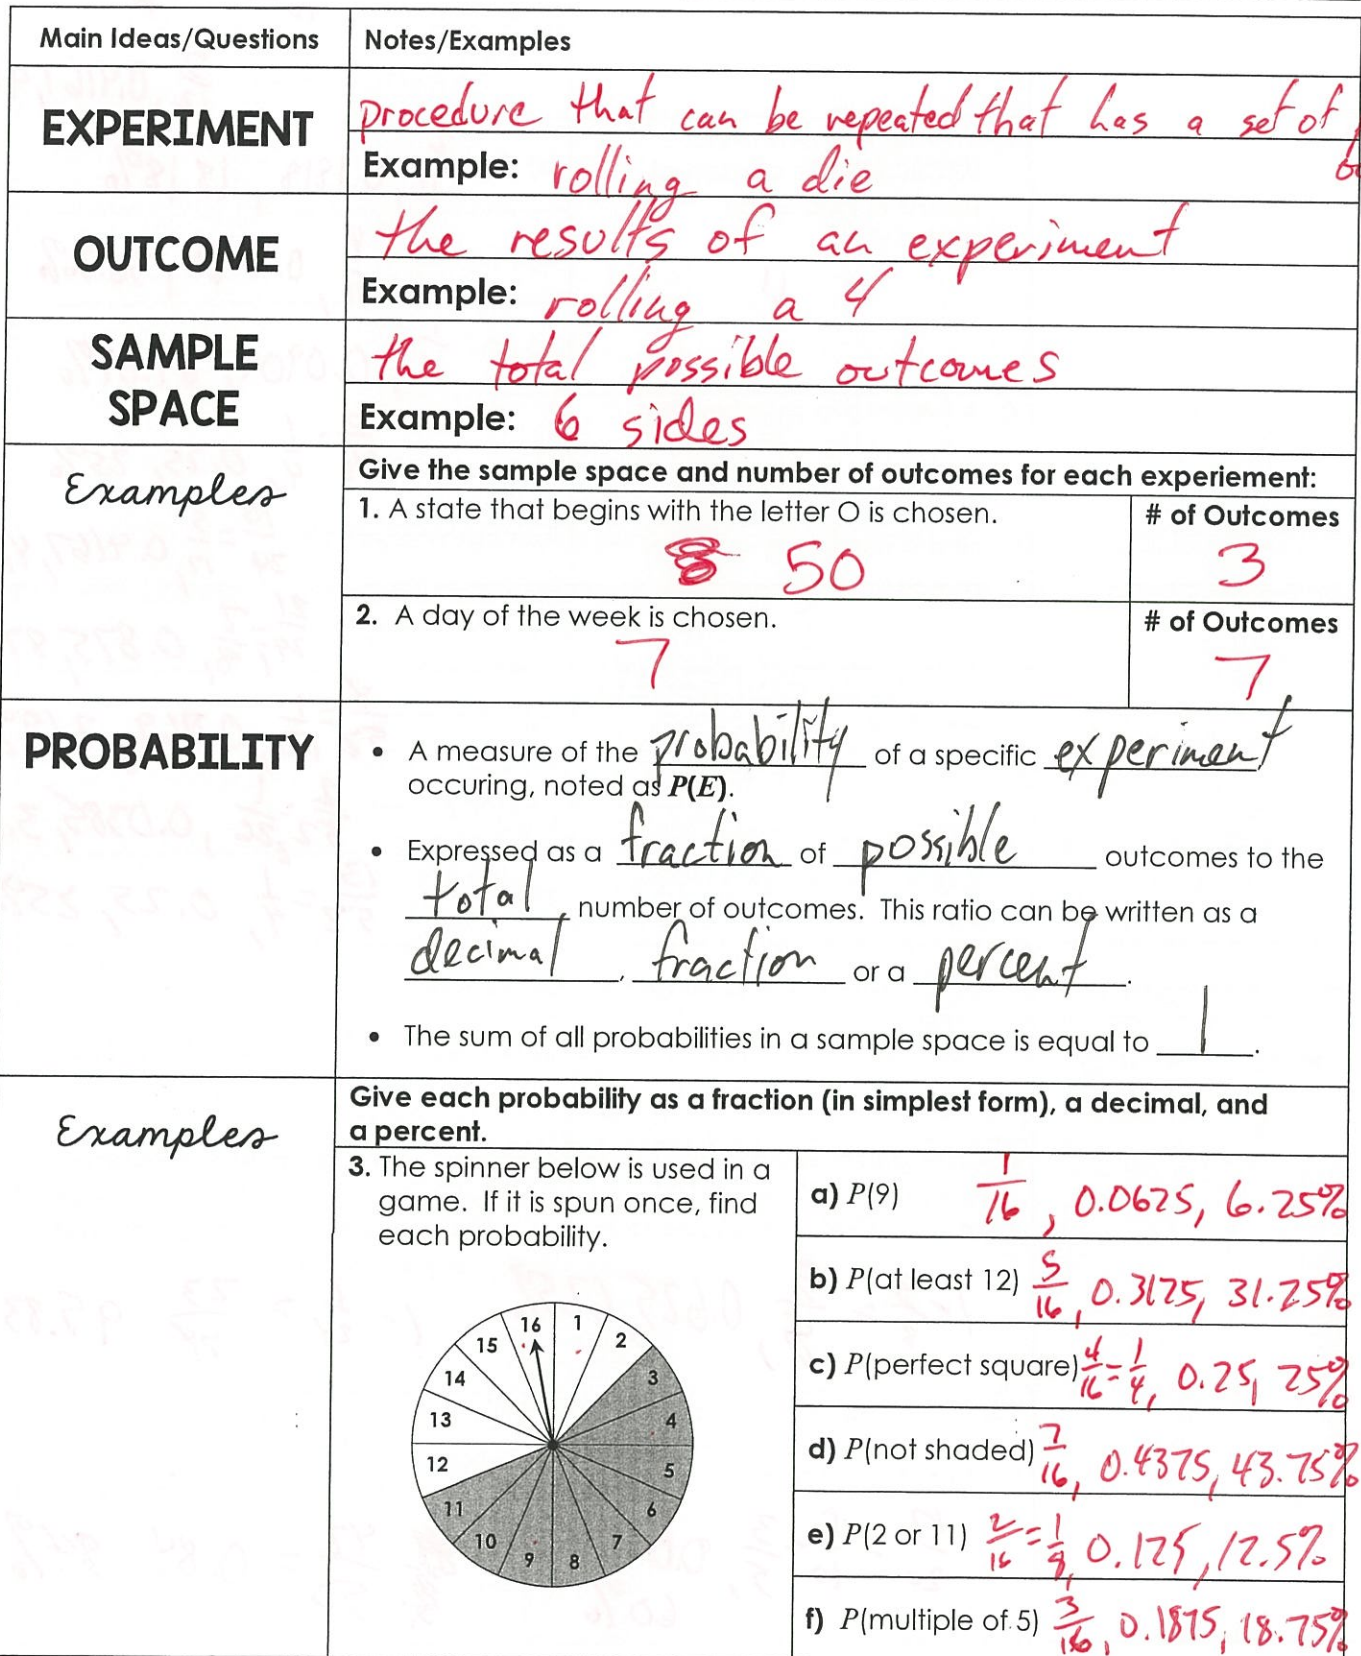 Main Ideas/Questions
Notes/Examples
EXPERIMENT
procedure that can be repeated that has a set of
Example: rolling a die
OUTCOME
the results of an experiment
Example: rolling a 4
SAMPLE
SPACE
the total possible outcomes
Example: 6 sides
Examples
Give the sample space and number of outcomes for each experiement:
1. A state that begins with the letter O is chosen.
50
# of Outcomes
3
2. A day of the week is chosen.
7
# of Outcomes
7
PROBABILITY
• A measure of the probability of a specific experiment
occuring, noted as P(E).
• Expressed as a fraction of possible outcomes to the
total number of outcomes. This ratio can be written as a
decimal, fraction or a percent.
• The sum of all probabilities in a sample space is equal to 1.
Examples
Give each probability as a fraction (in simplest form), a decimal, and
a percent.
3. The spinner below is used in a
game. If it is spun once, find
each probability.
16 1
15 2
14 3
13 4
12 5
11 6
10 7
9 8
a) P(9) 1/16, 0.0625, 6.25%
b) P(at least 12) 5/16, 0.3125, 31.25%
c) P(perfect square) 4/16 = 1/4, 0.25, 25%
d) P(not shaded) 7/16, 0.4375, 43.75%
e) P(2 or 11) 2/16 = 1/8, 0.125, 12.5%
f) P(multiple of 5) 3/16, 0.1875, 18.75%